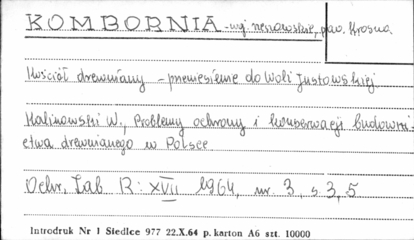 KOMBORNIA - woj. rzeszowskie, pow. Krosno
Kościół drewniany - przeniesienie do Woli Justowskiej.
Kalinowski W., Problemy ochrony i konserwacji budowni
ctwa drewnianego w Polsce
Ochr. Zab. R: XVII 1964, nr. 3, s 3, 5
Introdruk Nr 1 Siedlce 977 22.X.64 p. karton A6 szt. 10000